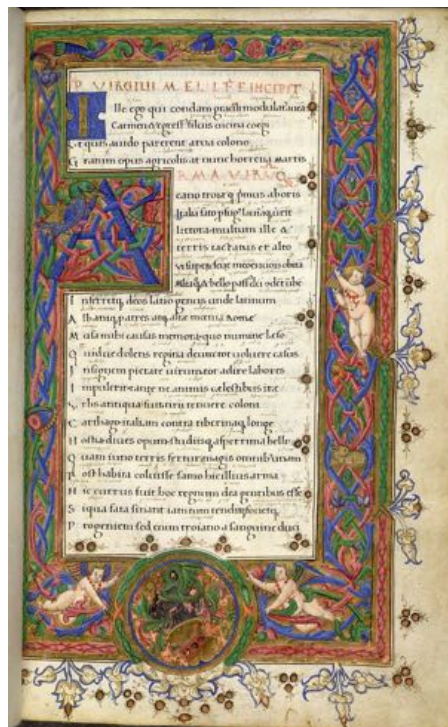 P. VIRGILII M. E L I INCIPIT
Ille ego qui condam gracili modulatus avena
Carmen & egress' silvis vicina coegi
Ut quis avido parerent arva colono
Gratum opus agricolis at nunc horrentia martis
ARMA VIRUQ
cano troie q primus ab oris
Italia fato
littora multum ille &
terris iactatus et alto
vi superum
Multa q & bello passus
Inferretq deos latio genus unde latinum
Albaniq patres atq alte moenia Rome
Musa mihi causas memora quo numine leso
Quidve dolens regina deum tot volvere casus
Insignem pietate virum tot adire labores
Impulerit tantęne animis cęlestibus irę
Urbs antiqua fuit tirii tenuere coloni
Carthago italiam contra tiberinaq longe
Hostia dives opum studiisq asperrima belli
Quam iuno terris fertur magis omnib' unam
Post habita coluisse samo hic illius arma
Hic currus fuit hoc regnum dea gentibus esse
Siqua fata sinant iam tum
Progeniem sed enim troiano a sanguine duci